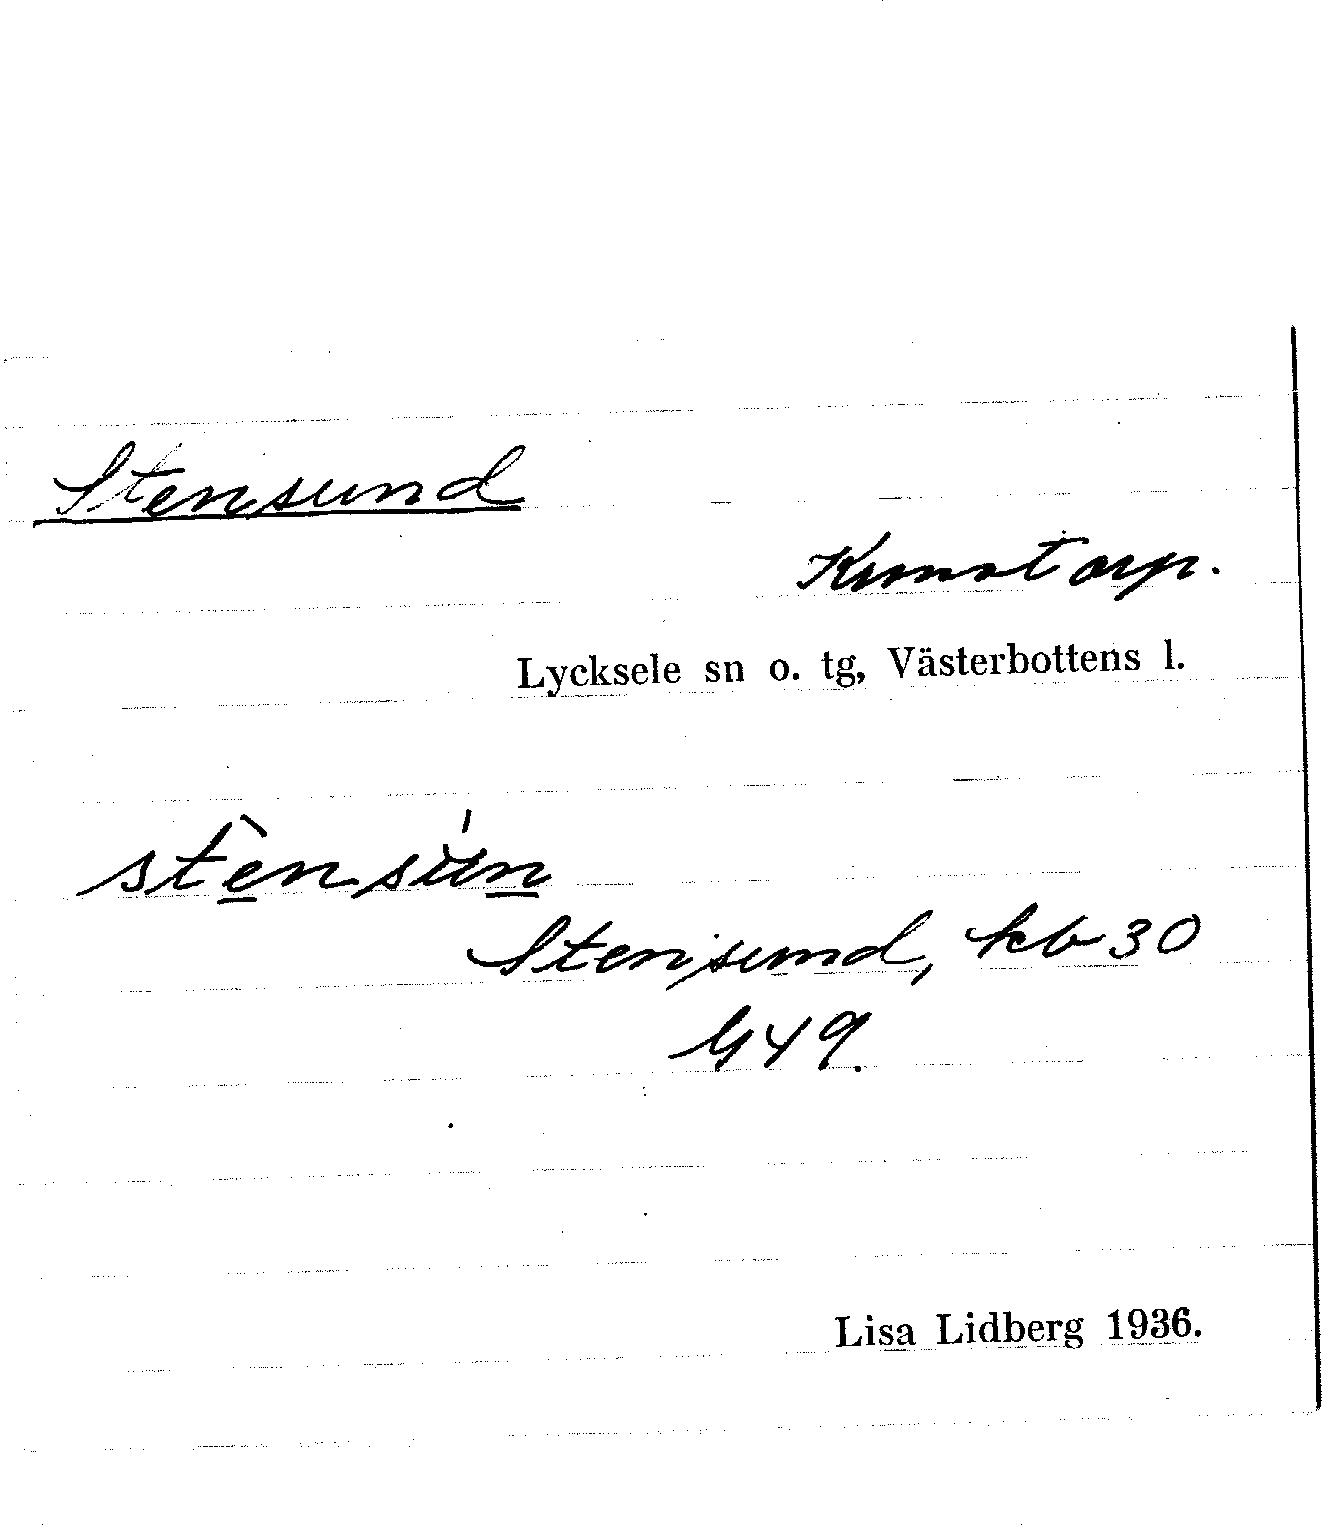 Stensund
Kronotorp.
Lycksele sn o. tg, Västerbottens l.
stènsún
Stensund, kb 30
G49.
Lisa Lidberg 1936.